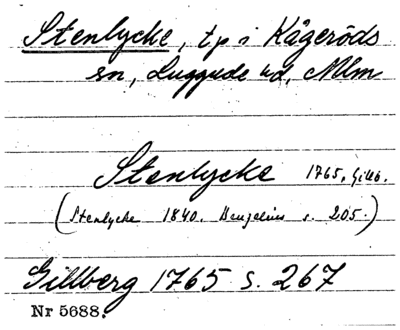 Stenlycke, tp i Kågeröds
sn, Luggude hd, Mlm
Stenlycke 1765, Gillb.
(Stenlycke 1840. s. 205.)
Gillberg 1765 s. 267
Nr 5688.